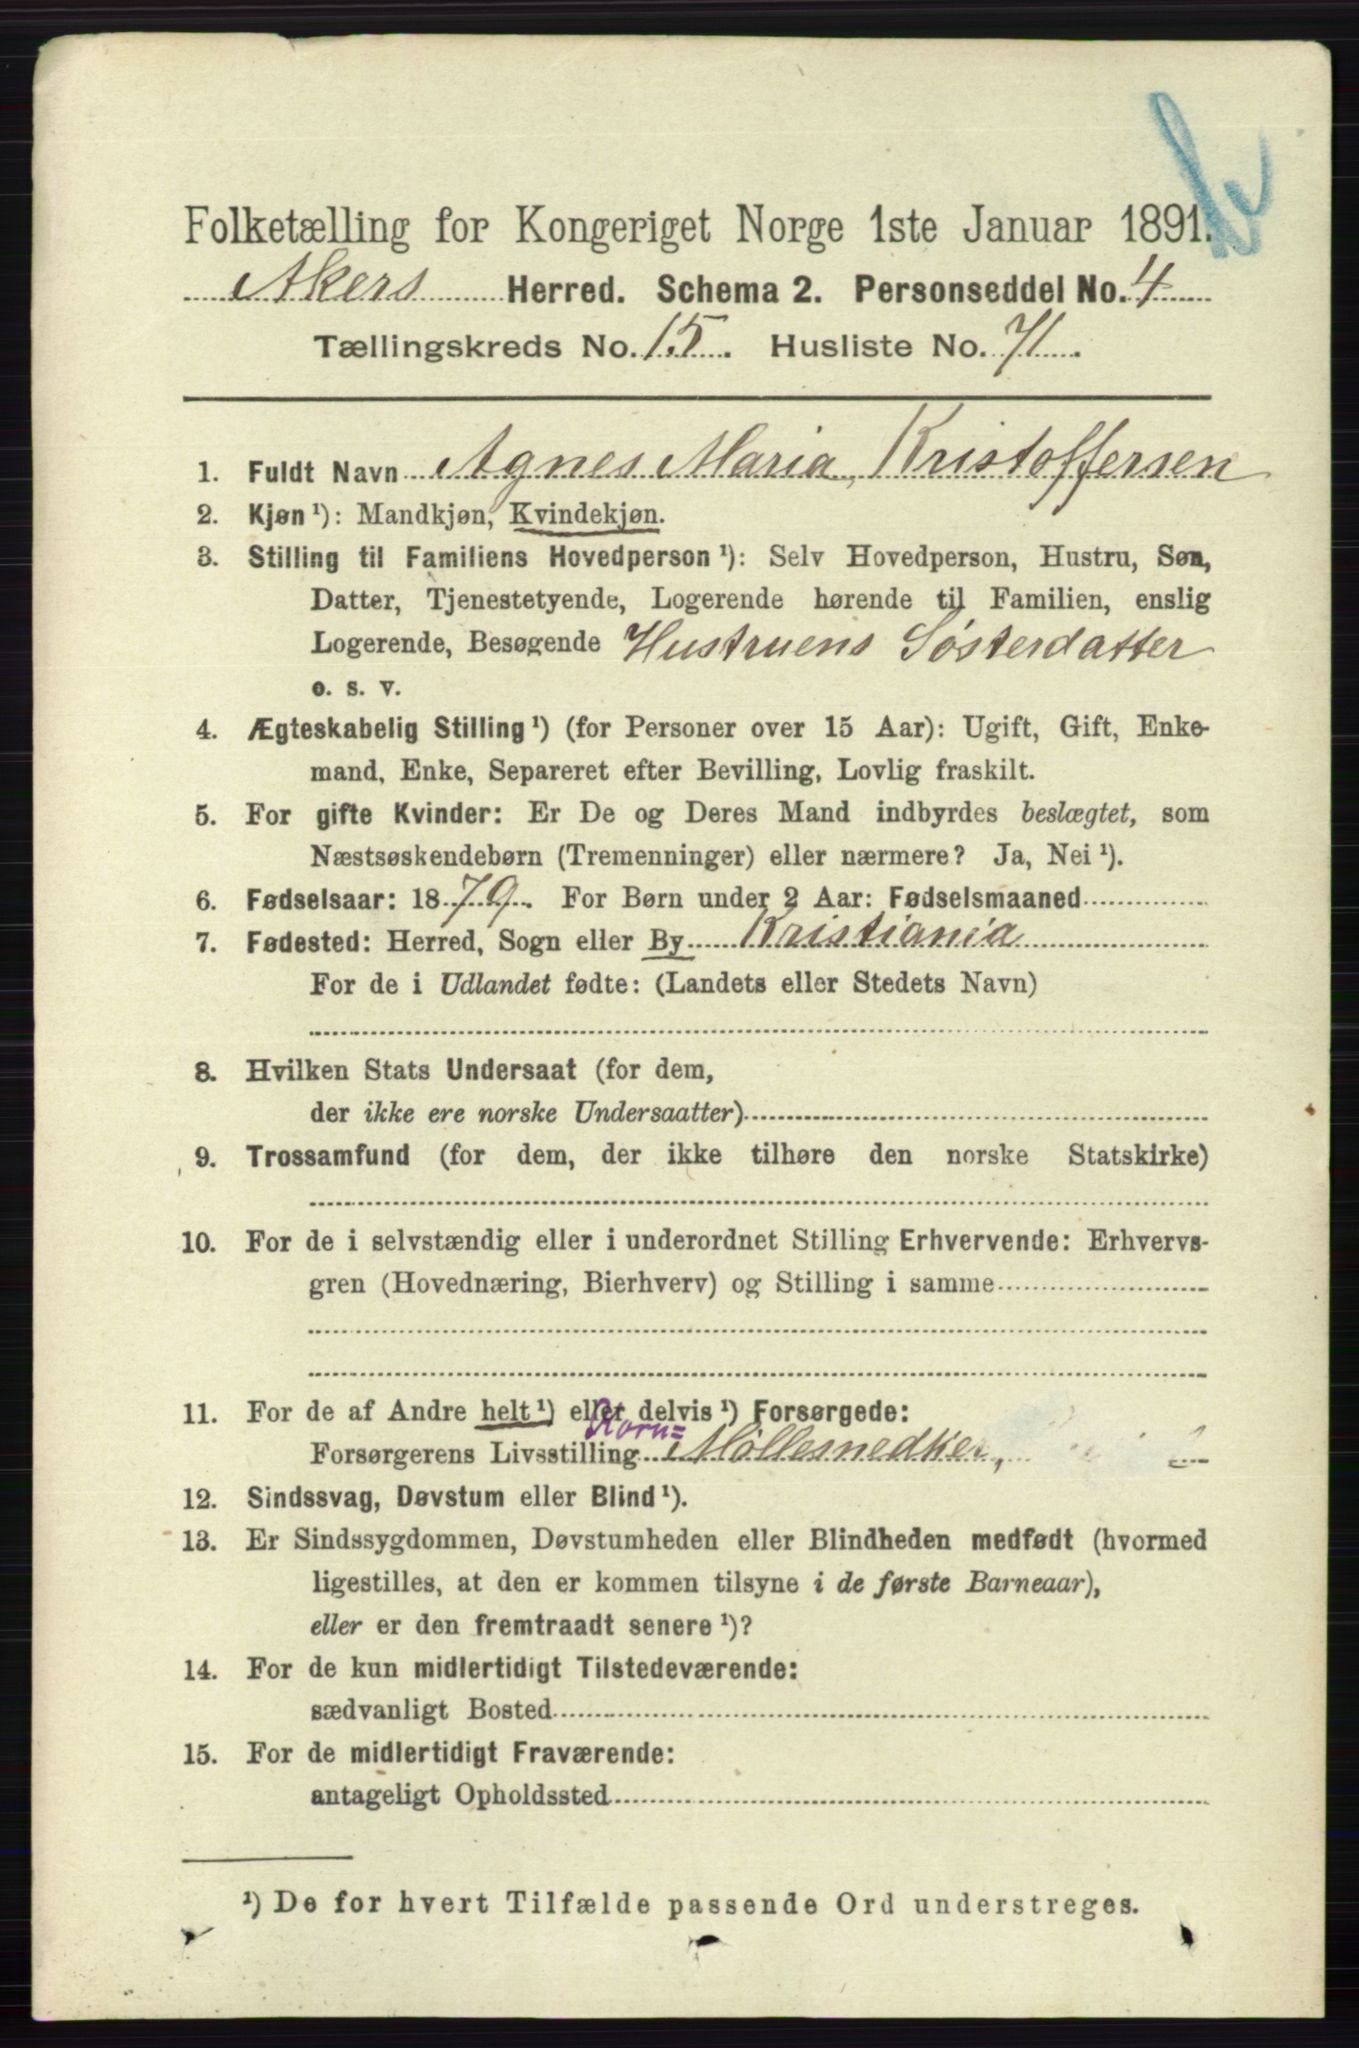 Folketælling for Kongeriget Norge 1ste Januar 1891.
Akers Herred. Schema 2. Personseddel No. 4
Tællingskreds No. 15. Husliste No. 71.
1. Fuldt Navn Agnes Maria, Kristoffersen
2. Kjøn ¹): Mandkjøn, Kvindekjøn.
3. Stilling til Familiens Hovedperson ¹): Selv Hovedperson, Hustru, Søn,
Datter, Tjenestetyende, Logerende hørende til Familien, enslig
Logerende, Besøgende Hustruens Søsterdatter
o. s. v.
4. Ægteskabelig Stilling ¹) (for Personer over 15 Aar): Ugift, Gift, Enke-
mand, Enke, Separeret efter Bevilling, Lovlig fraskilt.
5. For gifte Kvinder: Er De og Deres Mand indbyrdes beslægtet, som
Næstsøskendebørn (Tremenninger) eller nærmere? Ja, Nei ¹).
6. Fødselsaar: 1879. For Børn under 2 Aar: Fødselsmaaned
7. Fødested: Herred, Sogn eller By Kristiania
For de i Udlandet fødte: (Landets eller Stedets Navn)
8. Hvilken Stats Undersaat (for dem,
der ikke ere norske Undersaatter)
9. Trossamfund (for dem, der ikke tilhøre den norske Statskirke)
10. For de i selvstændig eller i underordnet Stilling Erhvervende: Erhvervs-
gren (Hovednæring, Bierhverv) og Stilling i samme
11. For de af Andre helt ¹) eller delvis ¹) Forsørgede:
Korn=
Forsørgerens Livsstilling Møllesnedker,
12. Sindssvag, Døvstum eller Blind ¹).
13. Er Sindssygdommen, Døvstumheden eller Blindheden medfødt (hvormed
ligestilles, at den er kommen tilsyne i de første Barneaar),
eller er den fremtraadt senere ¹)?
14. For de kun midlertidigt Tilstedeværende:
sædvanligt Bosted
15. For de midlertidigt Fraværende:
antageligt Opholdssted
¹) De for hvert Tilfælde passende Ord understreges.